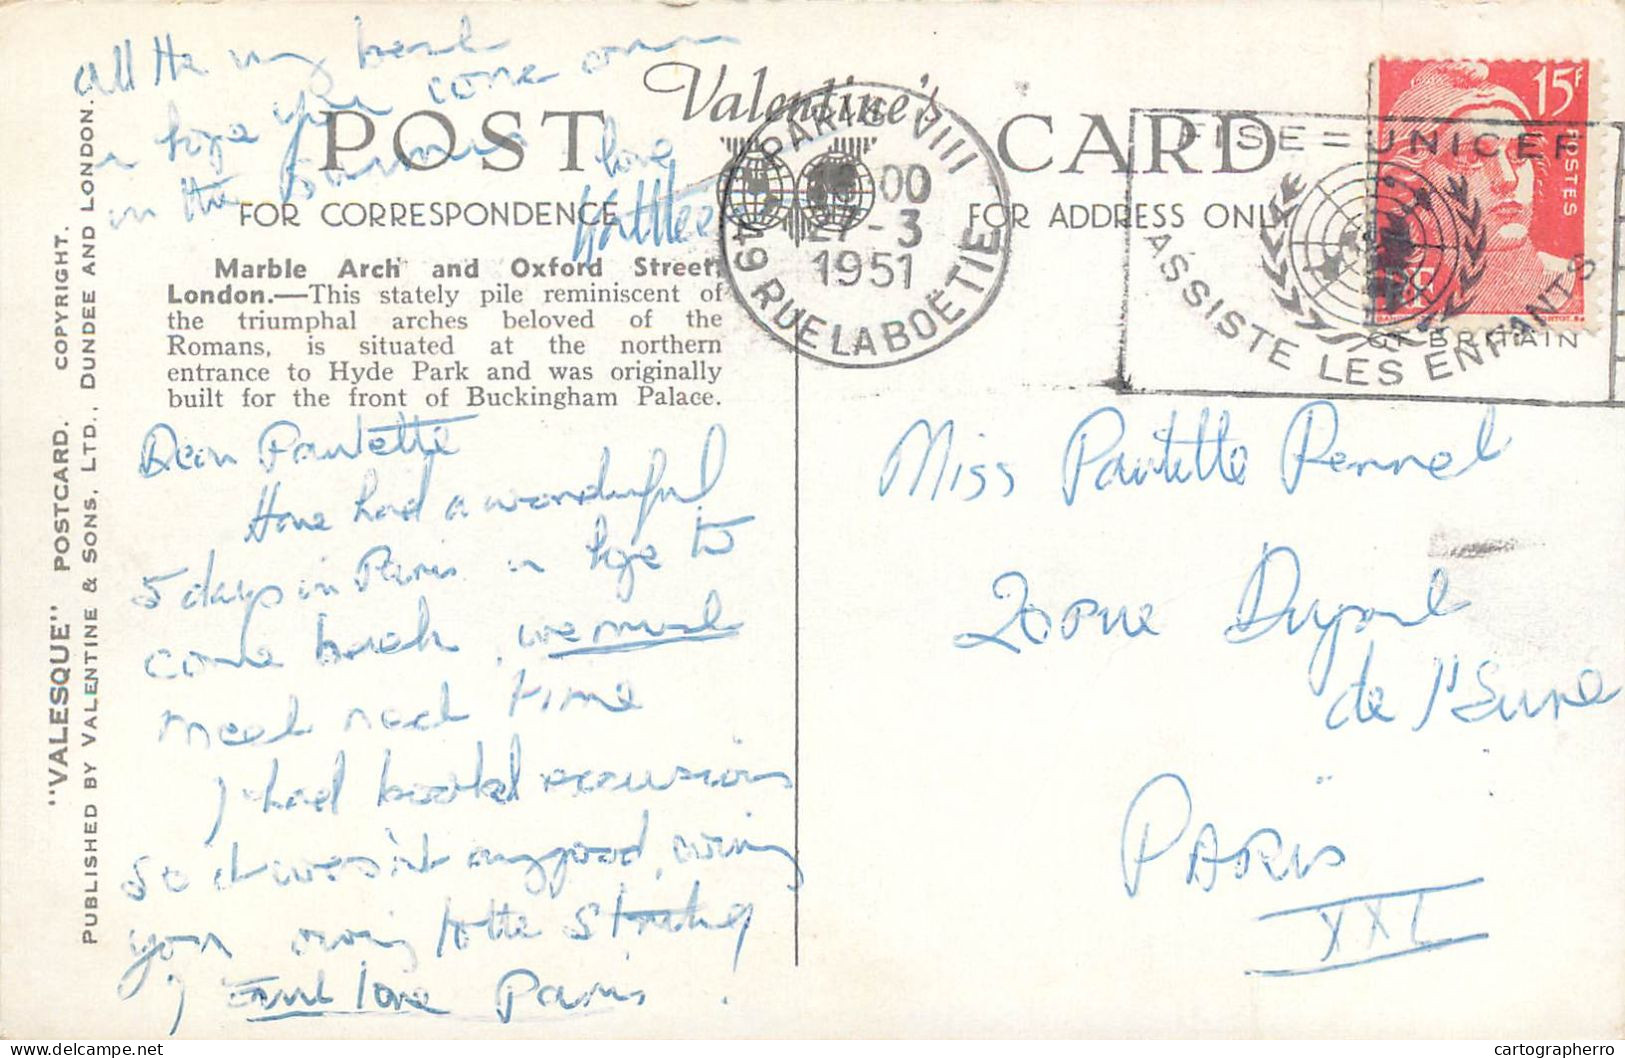 all the my best
hope you come
in the love
Valentine's
POST CARD
FOR CORRESPONDENCE
FOR ADDRESS ONLY
Marble Arch and Oxford Street,
London.—This stately pile reminiscent of
the triumphal arches beloved of the
Romans, is situated at the northern
entrance to Hyde Park and was originally
built for the front of Buckingham Palace.
"VALESQUE" POSTCARD. COPYRIGHT.
PUBLISHED BY VALENTINE & SONS, LTD., DUNDEE AND LONDON.
Dear Paulette
Have had a wonderful
5 days in Paris hope to
come back, we must
meet next time
I had booked excursions
so it wasn't any good, owing
you owing to the
I love Paris.
PARIS VIII
00
27-3
1951
49 RUE LA BOËTIE
FISE = UNICEF
ASSISTE LES ENFANTS
15F
POSTES
GT BRITAIN
Miss Paulette
20 rue Dupont
de l'Eure
PARIS
XX
delcampe.net
cartographerro